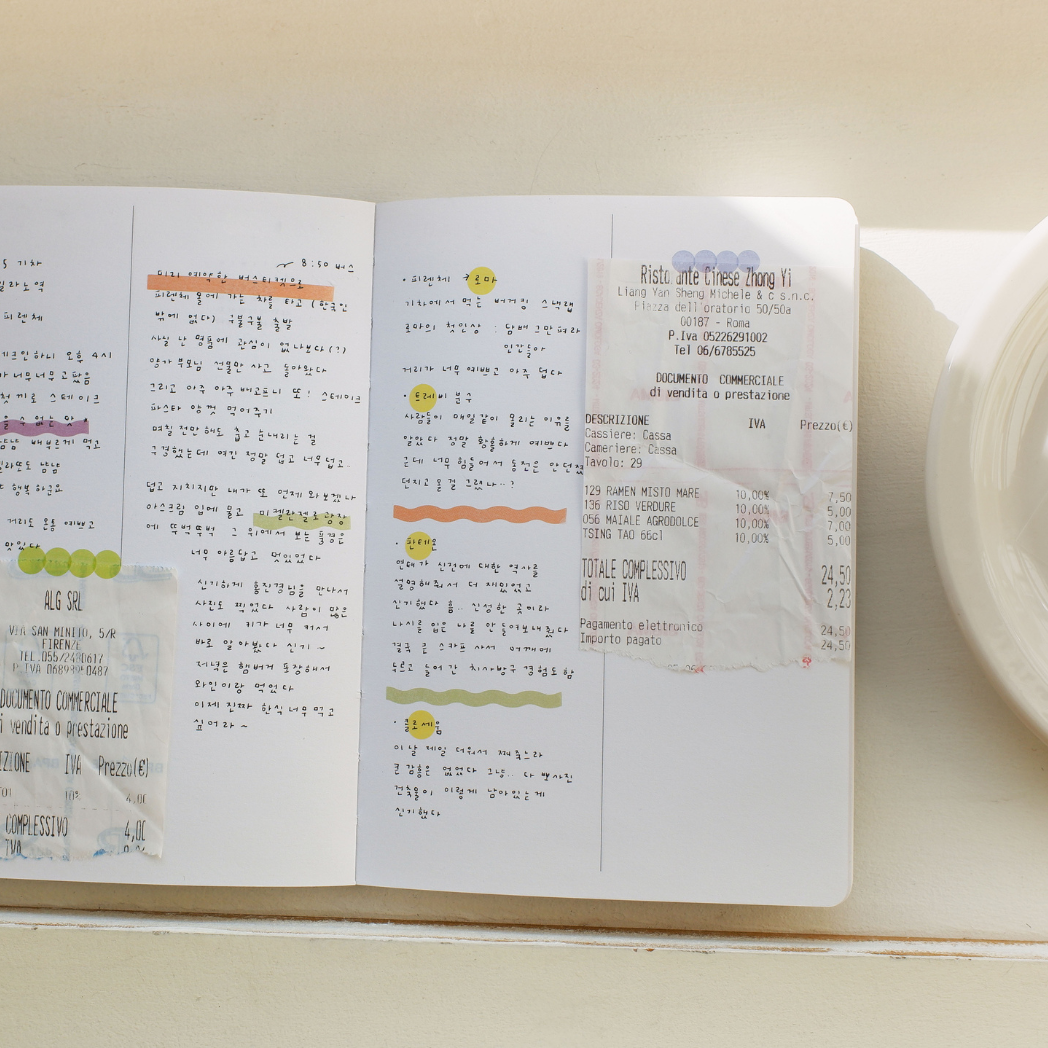 5 기차
밀라노역
피렌체
체크인하니 오후 4시
너무너무 고팠음
스테이크
수 없는 맛
냠냠 배부르게 먹고
젤라또도 냠냠
행복하군요
거리도 온통 예쁘고
맛있다
ALG SRL
VIA SAN MINITO, 5/R
FIRENZE
TEL.055/2480617
P.IVA
DOCUMENTO COMMERCIALE
di vendita o prestazione
IZIONE IVA Prezzo(€)
4,00
COMPLESSIVO 4,00
IVA
8:50 버스
미리 예약한 버스티켓으로
피렌체 몰에 가는 차를 타고 (한국인
밖에 없다) 구불구불 출발
사실 난 명품에 관심이 없나보다(?)
양가부모님 선물만 사고 돌아왔다
그리고 아주 아주 배고프니 또! 스테이크
파스타 양껏 먹어주기
며칠 전만해도 춥고 눈내리는 걸
구경했는데 여긴 정말 덥고 너무덥고..
덥고 지치지만 내가 또 언제 와보겠나
아스크림 입에 물고 미켈란젤로광장
에 뚜벅뚜벅 그 위에서 보는 풍경은
너무 아름답고 멋있었다
신기하게 홍진경님을 만나서
사진도 찍었다 사람이 많은
사이에 키가 너무 커서
바로 알아봤다 신기~
저녁은 햄버거 포장해서
와인이랑 먹었다
이제 진짜 한식 너무 먹고
싶어라~
· 피렌체 → 로마
기차에서 먹는 버거킹 스낵랩
로마의 첫인상 : 담배 그만펴라
인간들아
거리가 너무 예쁘고 아주 덥다
· 트레비 분수
사람들이 매일같이 몰리는 이유를
알았다 정말 황홀하게 예쁘다
근데 너무 힘들어서 동전은 안던졌
던지고 올걸 그랬나..?
· 판테온
언태가 신전에 대한 역사를
설명해줘서 더 재밌었고
신기했다 흠.. 신성한 곳이라
나시를 입은 나를 안들여보내줬다
결국 큰 스카프 사서 어깨에
두르고 들어간 치사빵구 경험도 함
· 콜로세움
이날 제일 더워서 쪄죽느라
큰 감흥은 없었다 그냥.. 다 뿌사진
건축물이 이렇게 남아있는게
신기했다
Ristorante Cinese Zhong Yi
Liang Yan Sheng Michele & c s.n.c.
Piazza dell'oratorio 50/50a
00187 - Roma
P.Iva 05226291002
Tel 06/6785525
DOCUMENTO COMMERCIALE
di vendita o prestazione
DESCRIZIONE IVA Prezzo(€)
Cassiere: Cassa
Cameriere: Cassa
Tavolo: 29
129 RAMEN MISTO MARE 10,00% 7,50
136 RISO VERDURE 10,00% 5,00
056 MAIALE AGRODOLCE 10,00% 7,00
TSING TAO 66cl 10,00% 5,00
TOTALE COMPLESSIVO 24,50
di cui IVA 2,23
Pagamento elettronico 24,50
Importo pagato 24,50